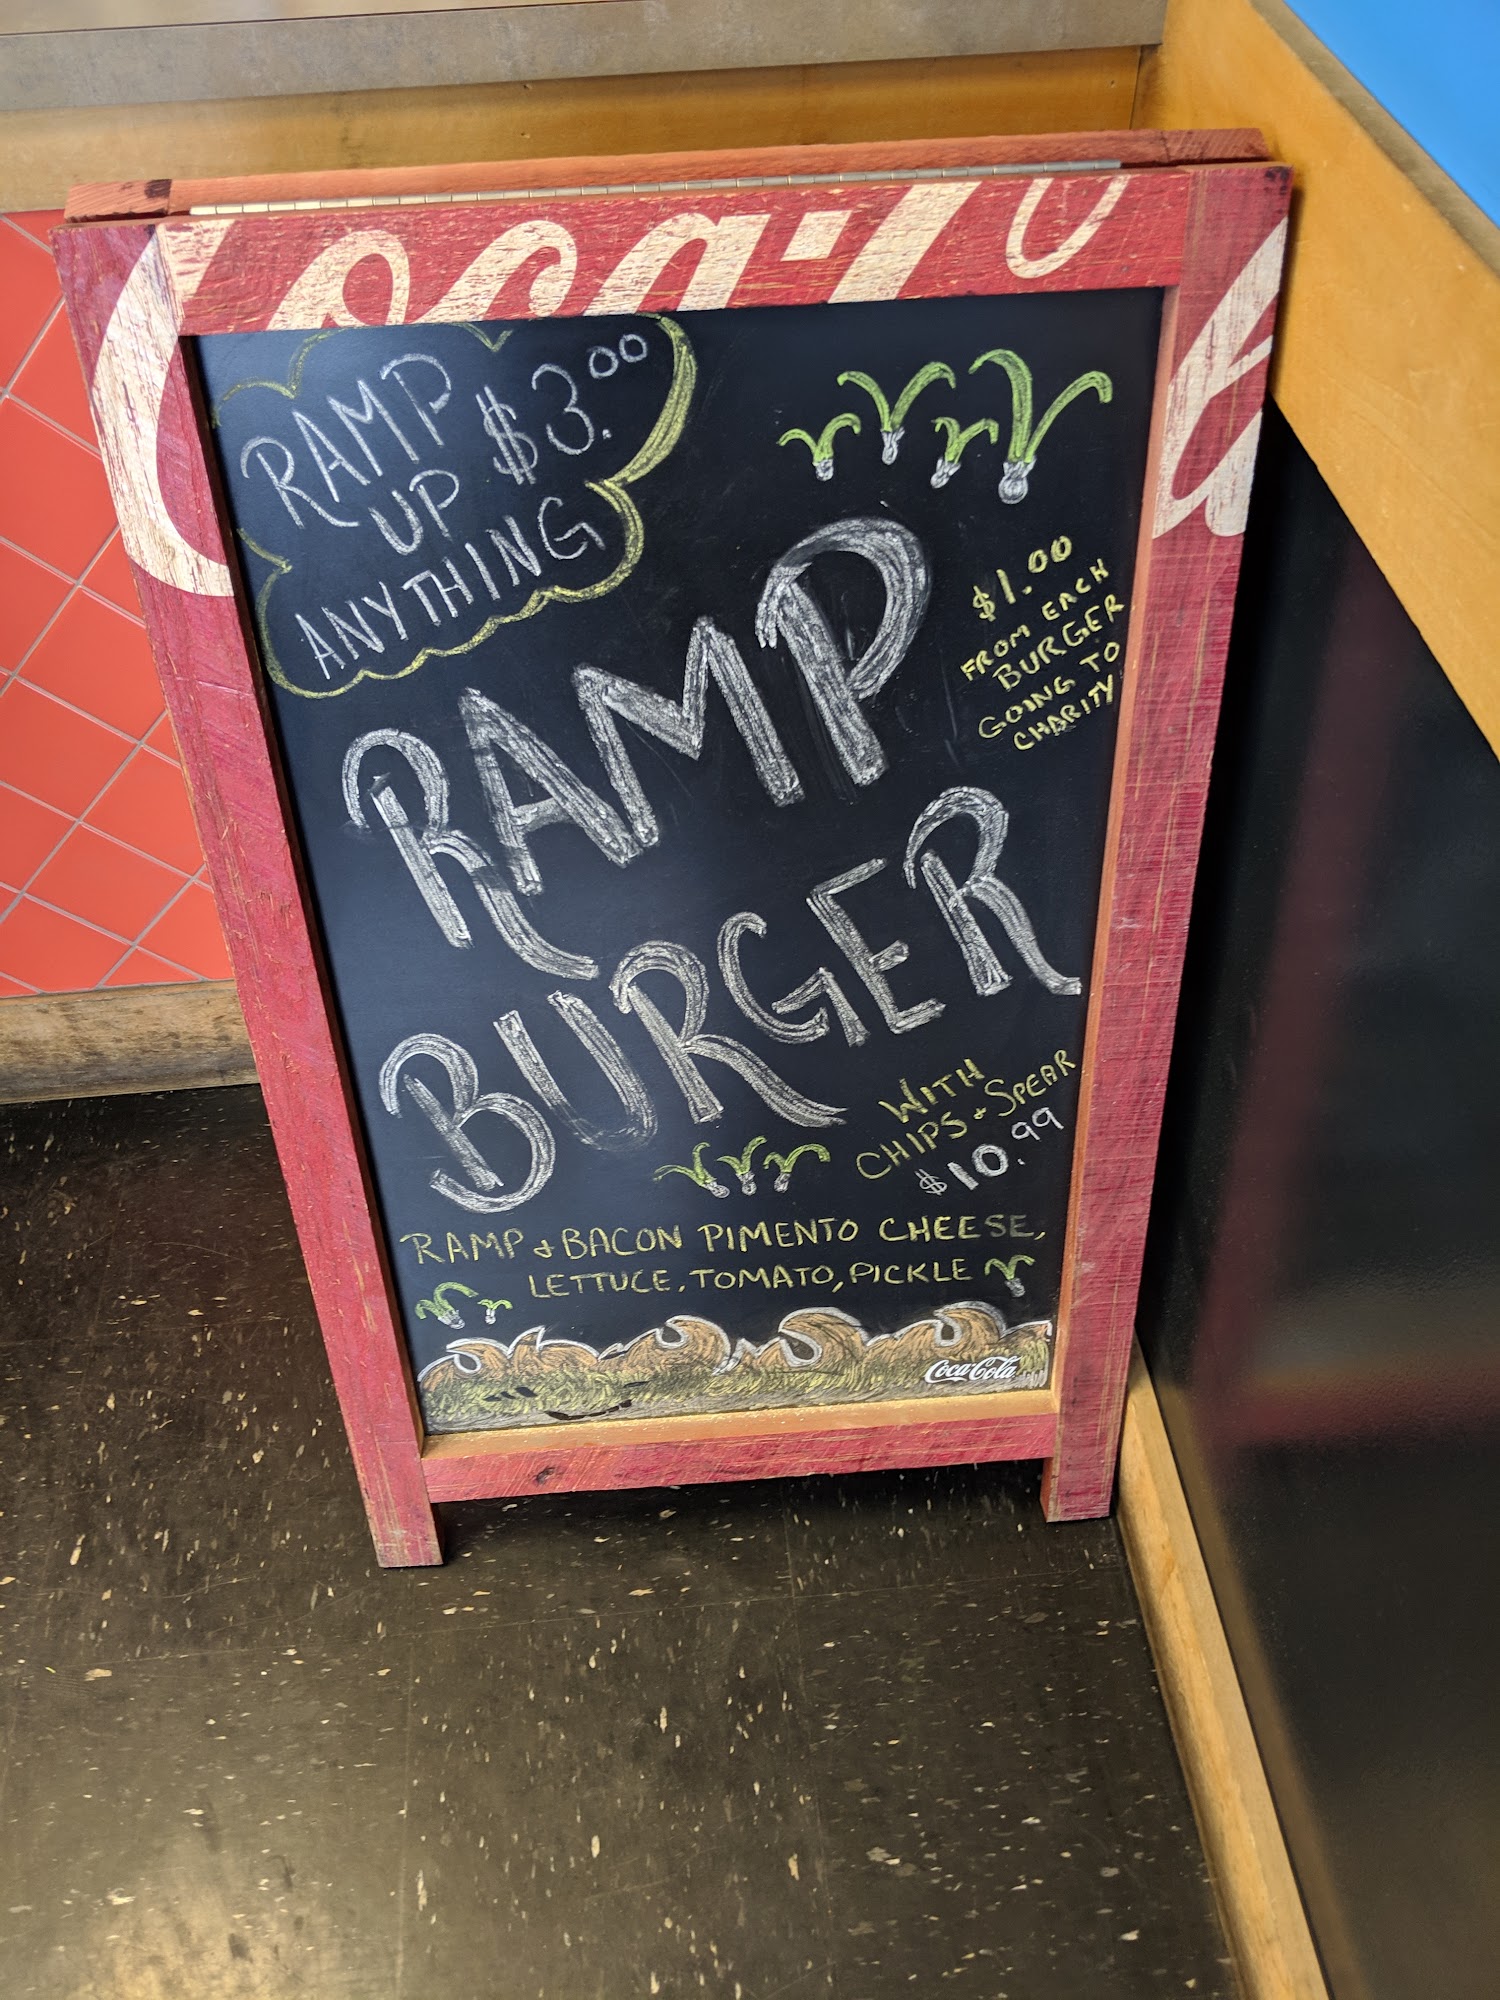 Coca-Cola
RAMP
UP $3.00
ANYTHING
$1.00
FROM EACH
BURGER
GOING TO
CHARITY
RAMP
BURGER
WITH
CHIPS + SPEAR
$10.99
RAMP + BACON PIMENTO CHEESE,
LETTUCE, TOMATO, PICKLE
Coca-Cola